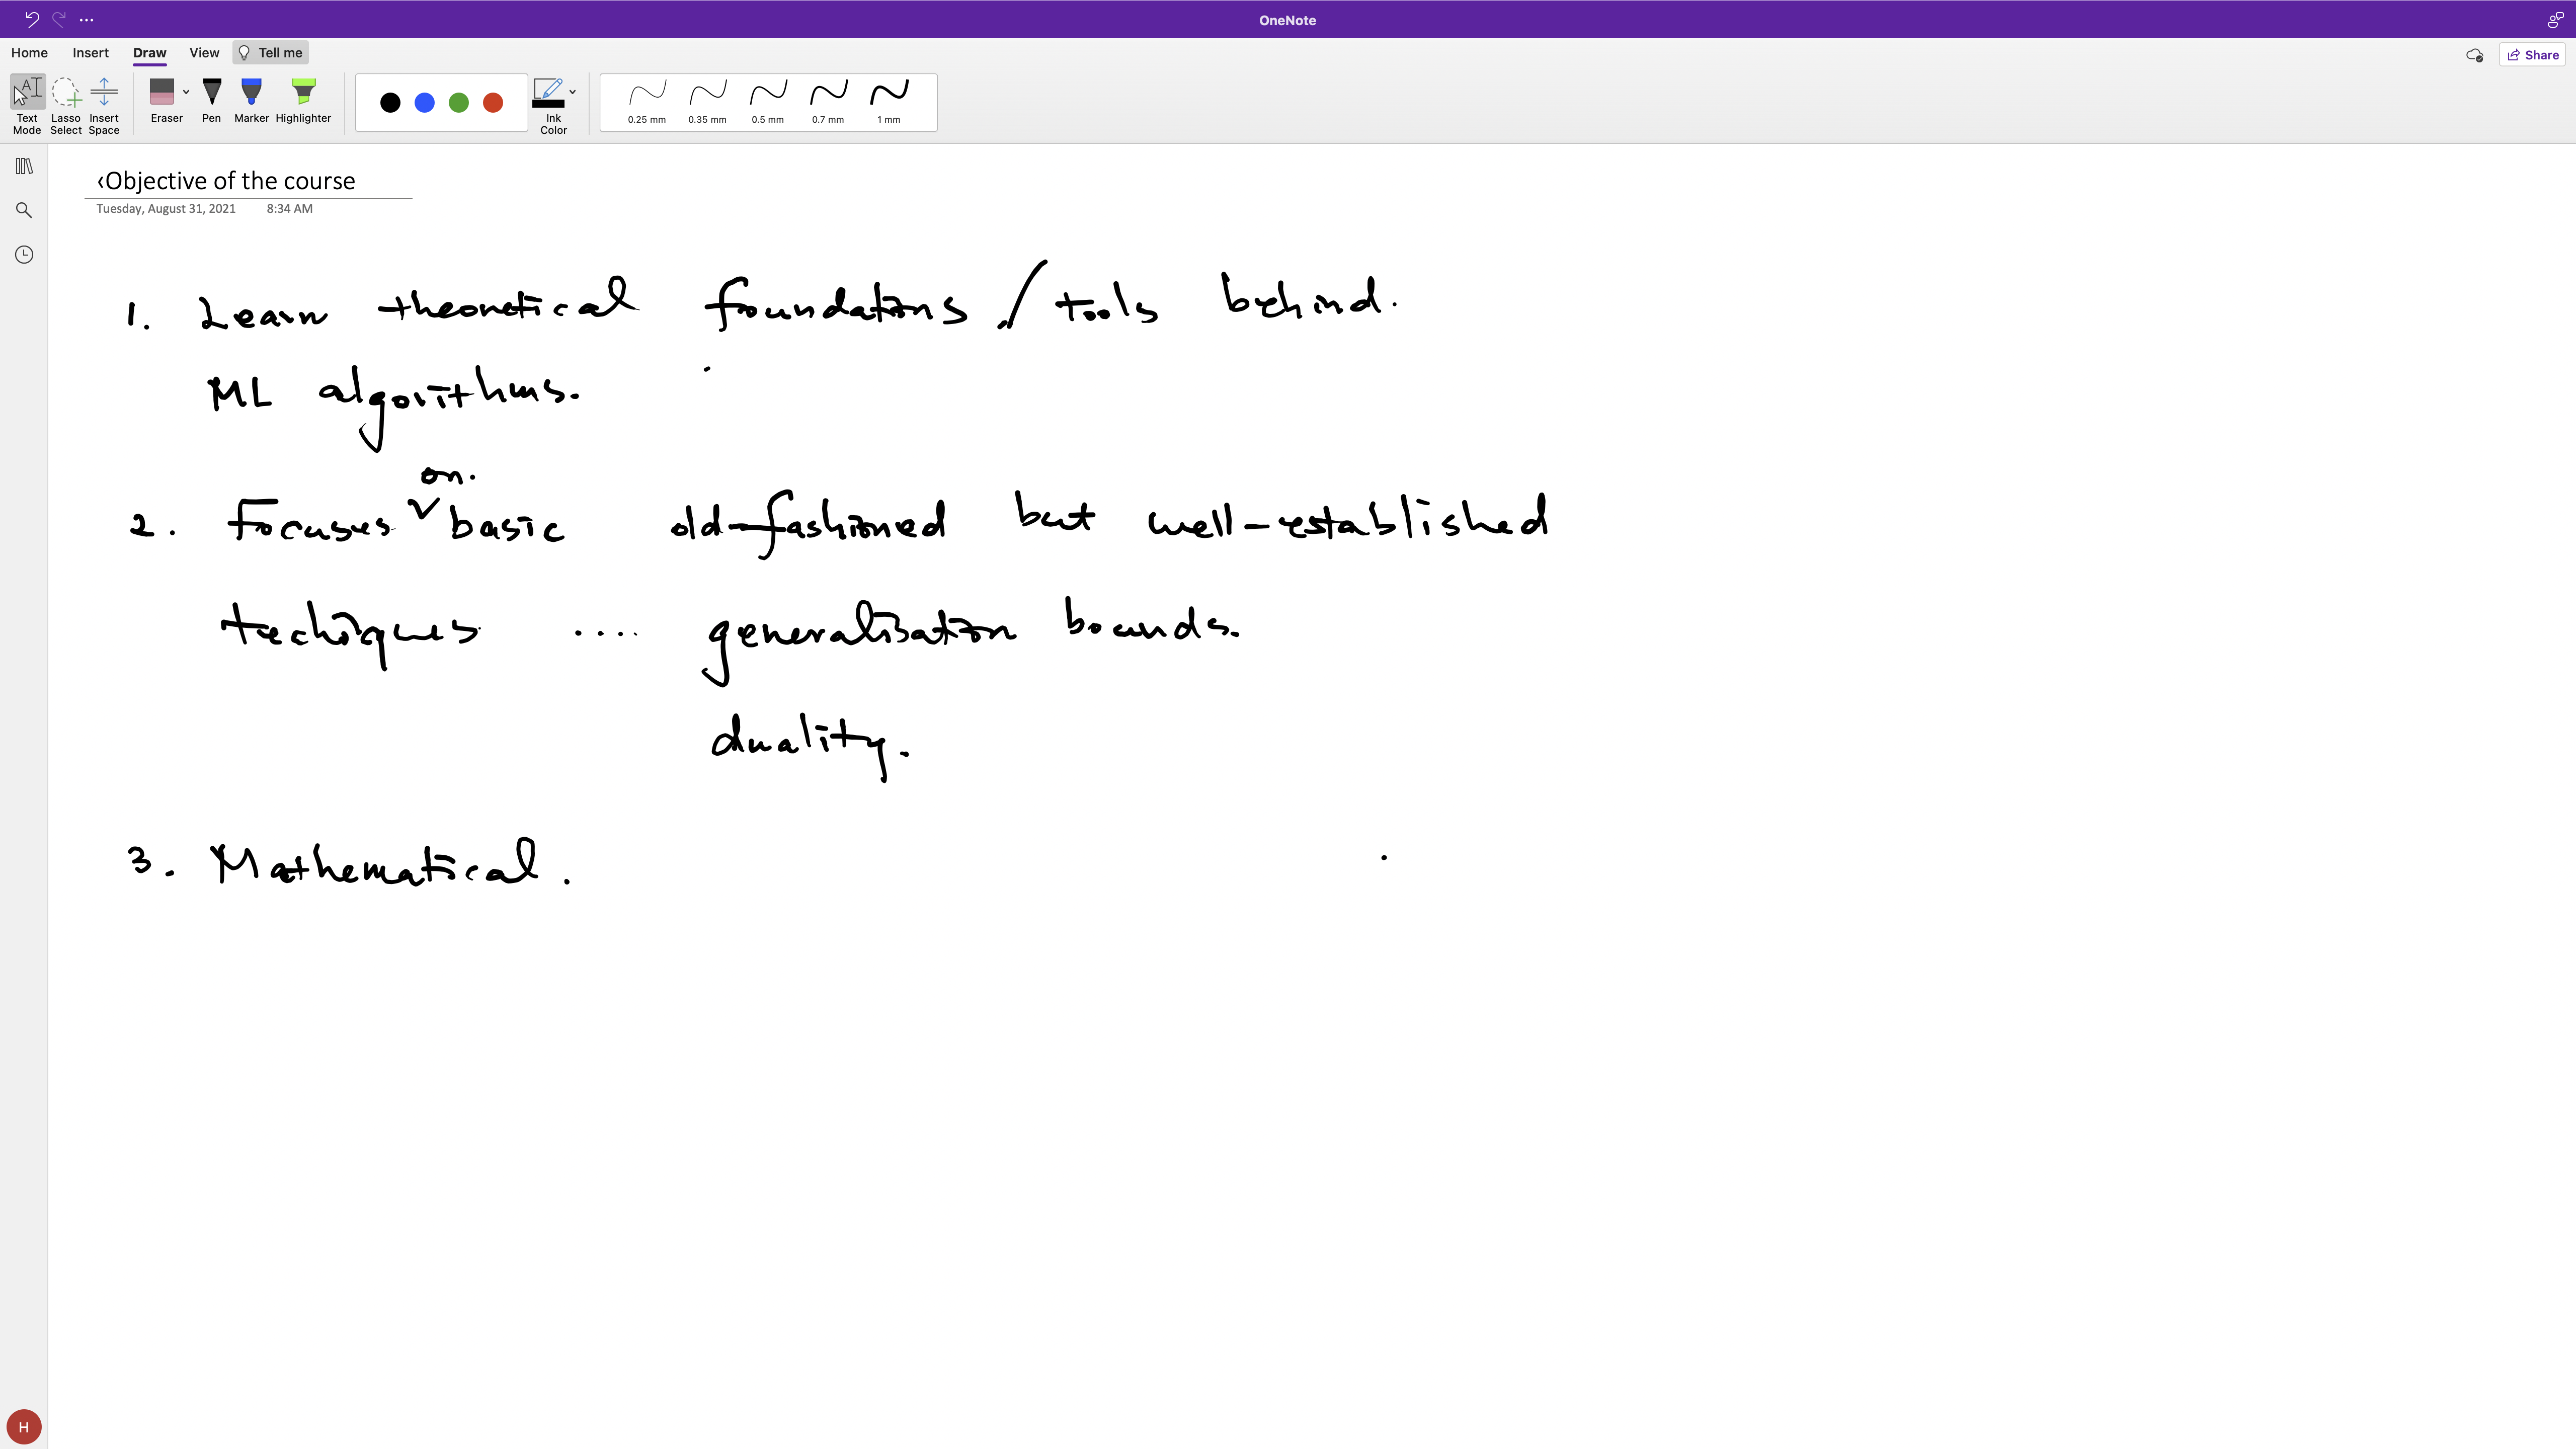 OneNote
Home Insert Draw View Tell me
Share
Text Mode
Lasso Select
Insert Space
Eraser
Pen
Marker
Highlighter
Ink Color
0.25 mm 0.35 mm 0.5 mm 0.7 mm 1 mm
‹Objective of the course
Tuesday, August 31, 2021 8:34 AM
1. Learn theoretical foundations / tools behind.
ML algorithms.
on.
2. Focuses ∨ basic old-fashioned but well-established
techiques .... generalisation bounds.
duality.
3. Mathematical.
H